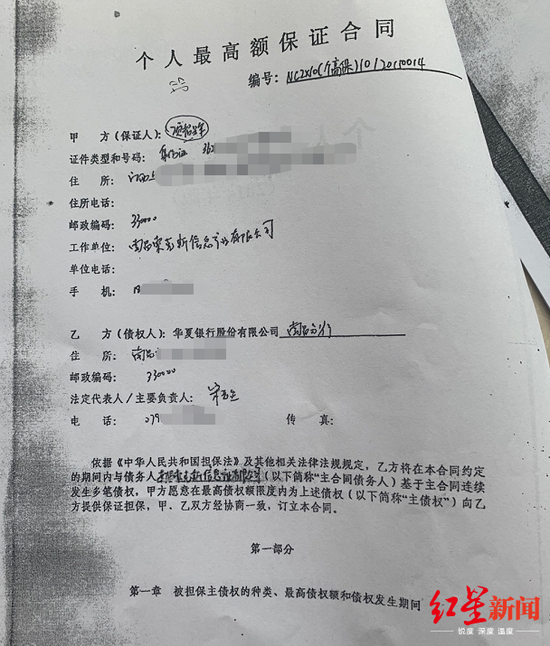 个人最高额保证合同
编号：NC2X10(个高保)10120110014
甲 方（保证人）：
证件类型和号码：身份证 362
住 所：江西上
住所电话：
邮政编码：330000
工作单位：南昌 新信息产业有限公司
单位电话：
手 机：18
乙 方（债权人）：华夏银行股份有限公司 南昌分行
住 所：南昌
邮政编码：330000
法定代表人/主要负责人：宋
电 话：079 传 真：
依据《中华人民共和国担保法》及其他相关法律法规规定，乙方将在本合同约定
的期间内与债务人 新信息产业有限公司（以下简称“主合同债务人）基于主合同连续
发生多笔债权，甲方愿意在最高债权额限度内为上述债权（以下简称“主债权”）向乙
方提供保证担保，甲、乙双方经协商一致，订立本合同。
第一部分
第一章 被担保主债权的种类、最高债权额和债权发生期间
红星新闻
锐度 深度 温度